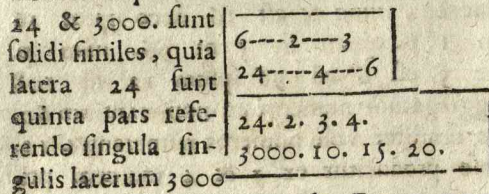 24 & 3000. ſunt
ſolidi ſimiles, quia
latera 24 ſunt
quinta pars refe-
rendo ſingula ſin-
gulis laterum 3000
6----2----3
24-----4----6
24. 2. 3. 4.
3000. 10. 15. 20.